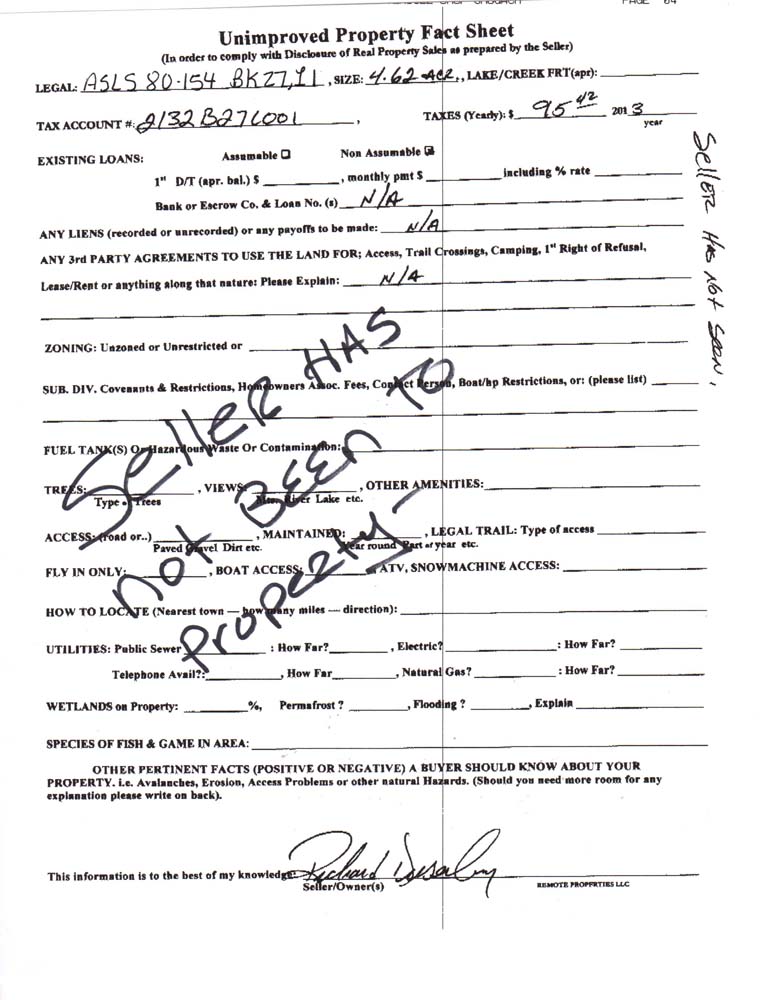 PAGE 04
Unimproved Property Fact Sheet
(In order to comply with Disclosure of Real Property Sales as prepared by the Seller)
LEGAL: ASLS 80-154 BK27,L1 , SIZE: 4.62 ACR., LAKE/CREEK FRT(apr):
TAX ACCOUNT #: 2132B27L001 , TAXES (Yearly): $ 95 42 2013
year
EXISTING LOANS: Assumable ☐ Non Assumable ☐
1st D/T (apr. bal.) $ , monthly pmt $ including % rate
Bank or Escrow Co. & Loan No. (s) N/A
ANY LIENS (recorded or unrecorded) or any payoffs to be made: N/A
ANY 3rd PARTY AGREEMENTS TO USE THE LAND FOR; Access, Trail Crossings, Camping, 1st Right of Refusal,
Lease/Rent or anything along that nature: Please Explain: N/A
ZONING: Unzoned or Unrestricted or
SUB. DIV. Covenants & Restrictions, Homeowners Assoc. Fees, Contact Person, Boat/hp Restrictions, or: (please list)
FUEL TANK(S) Or Hazardous Waste Or Contamination:
TREES: , VIEWS: , OTHER AMENITIES:
Type of Trees Mtn. River Lake etc.
ACCESS: (road or..) , MAINTAINED: , LEGAL TRAIL: Type of access
Paved Gravel Dirt etc. Year round Part of year etc.
FLY IN ONLY: , BOAT ACCESS: ATV, SNOWMACHINE ACCESS:
HOW TO LOCATE (Nearest town — how many miles — direction):
UTILITIES: Public Sewer : How Far? , Electric? : How Far?
Telephone Avail?: , How Far , Natural Gas? : How Far?
WETLANDS on Property: %, Permafrost ? , Flooding ? , Explain
SPECIES OF FISH & GAME IN AREA:
OTHER PERTINENT FACTS (POSITIVE OR NEGATIVE) A BUYER SHOULD KNOW ABOUT YOUR
PROPERTY. i.e. Avalanches, Erosion, Access Problems or other natural Hazards. (Should you need more room for any
explanation please write on back).
This information is to the best of my knowledge: Richard
Seller/Owner(s) REMOTE PROPERTIES LLC
Seller HAS
not Been TO
Property
Seller Has Not Seen,